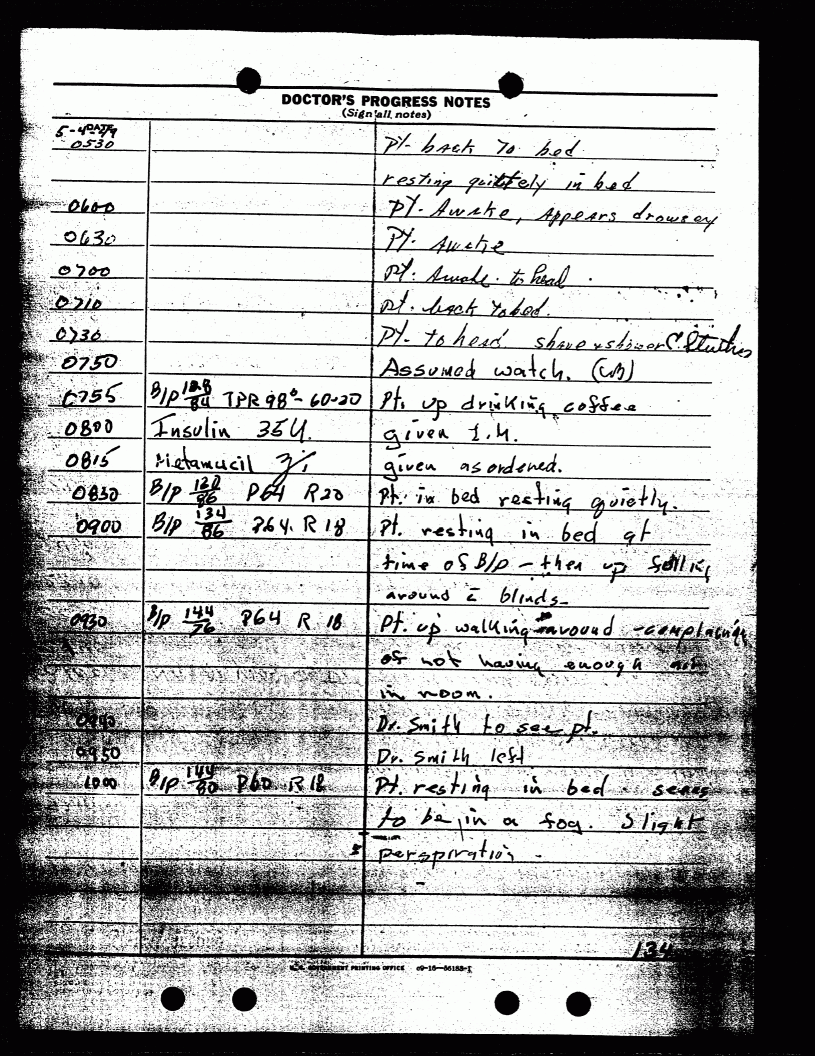 DOCTOR'S PROGRESS NOTES
(Sign all notes)
DATE
0530 Pt- back to bed
resting quitely in bed
0600 Pt- Awake, Appears drowsey
0630 Pt. Awake
0700 Pt. Awake to head.
0710 Pt. back to bed.
0730 Pt- to head. shave & shower
0750 Assumed watch.
0755 B/P 128/84 TPR 98⁶- 60-20 Pt. up drinking coffee
0800 Insulin 35U. given I.M.
0815 Metamucil given as ordered.
0830 B/P 128/86 P64 R20 Pt. in bed resting quietly.
0900 B/P 134/86 P64. R 18 Pt. resting in bed at
time of B/P - then up
around c̄ blinds-
0930 B/P 144/76 P64 R 18 Pt. up walking around -complaining
of not having enough air
in room.
0940 Dr. Smith to see pt.
0950 Dr. Smith left
1000 B/P 144/80 P60 R 18 Pt. resting in bed - seems
to be in a fog. Slight
perspiration -
134
U.S. GOVERNMENT PRINTING OFFICE